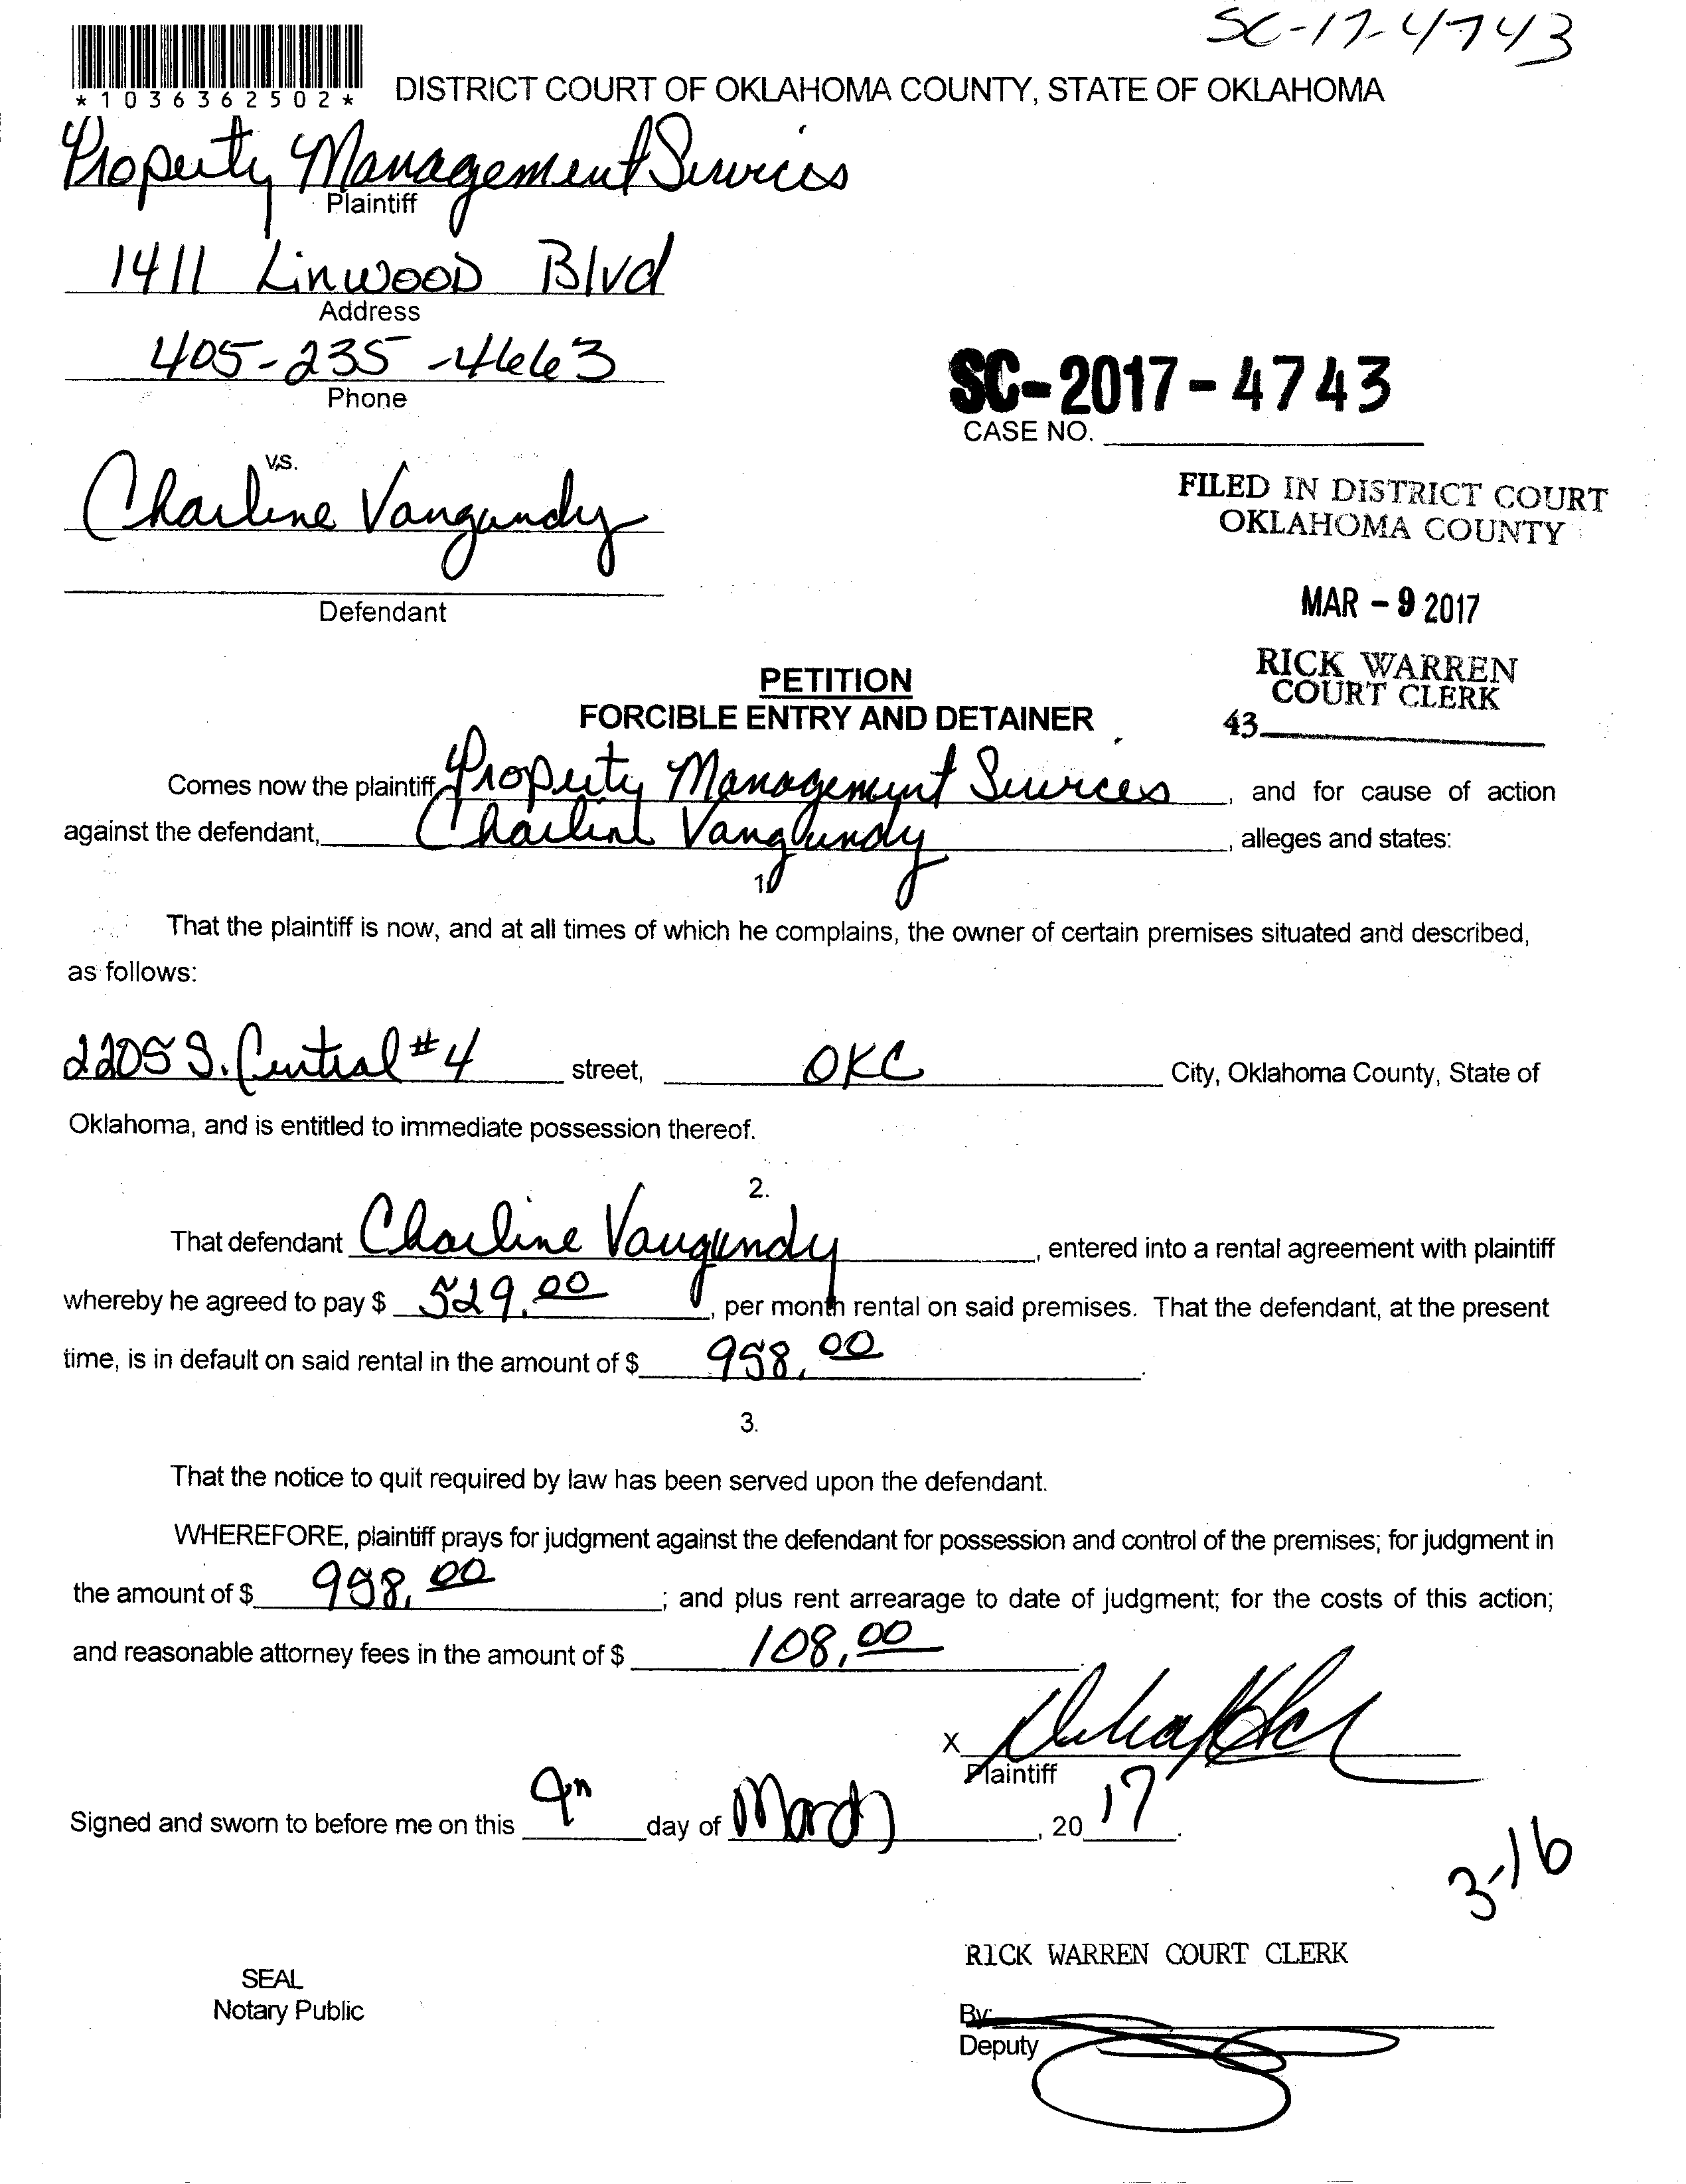 SC-17-4743
*1036362502*
DISTRICT COURT OF OKLAHOMA COUNTY, STATE OF OKLAHOMA
Property Management Services
Plaintiff
1411 Linwood Blvd
Address
405-235-4663
Phone
SC-2017-4743
CASE NO.
vs.
Charline Vangundy
Defendant
FILED IN DISTRICT COURT
OKLAHOMA COUNTY
MAR - 9 2017
RICK WARREN
COURT CLERK
43
PETITION
FORCIBLE ENTRY AND DETAINER
Comes now the plaintiff, Property Management Services, and for cause of action
against the defendant, Charline Vangundy, alleges and states:
1.
That the plaintiff is now, and at all times of which he complains, the owner of certain premises situated and described,
as follows:
2205 S. Central #4 street, OKC City, Oklahoma County, State of
Oklahoma, and is entitled to immediate possession thereof.
2.
That defendant Charline Vangundy, entered into a rental agreement with plaintiff
whereby he agreed to pay $ 529.00, per month rental on said premises. That the defendant, at the present
time, is in default on said rental in the amount of $ 958.00.
3.
That the notice to quit required by law has been served upon the defendant.
WHEREFORE, plaintiff prays for judgment against the defendant for possession and control of the premises; for judgment in
the amount of $ 958.00; and plus rent arrearage to date of judgment; for the costs of this action;
and reasonable attorney fees in the amount of $ 108.00.
X
Plaintiff
Signed and sworn to before me on this 9th day of March, 2017.
3-16
RICK WARREN COURT CLERK
SEAL
Notary Public
By:
Deputy